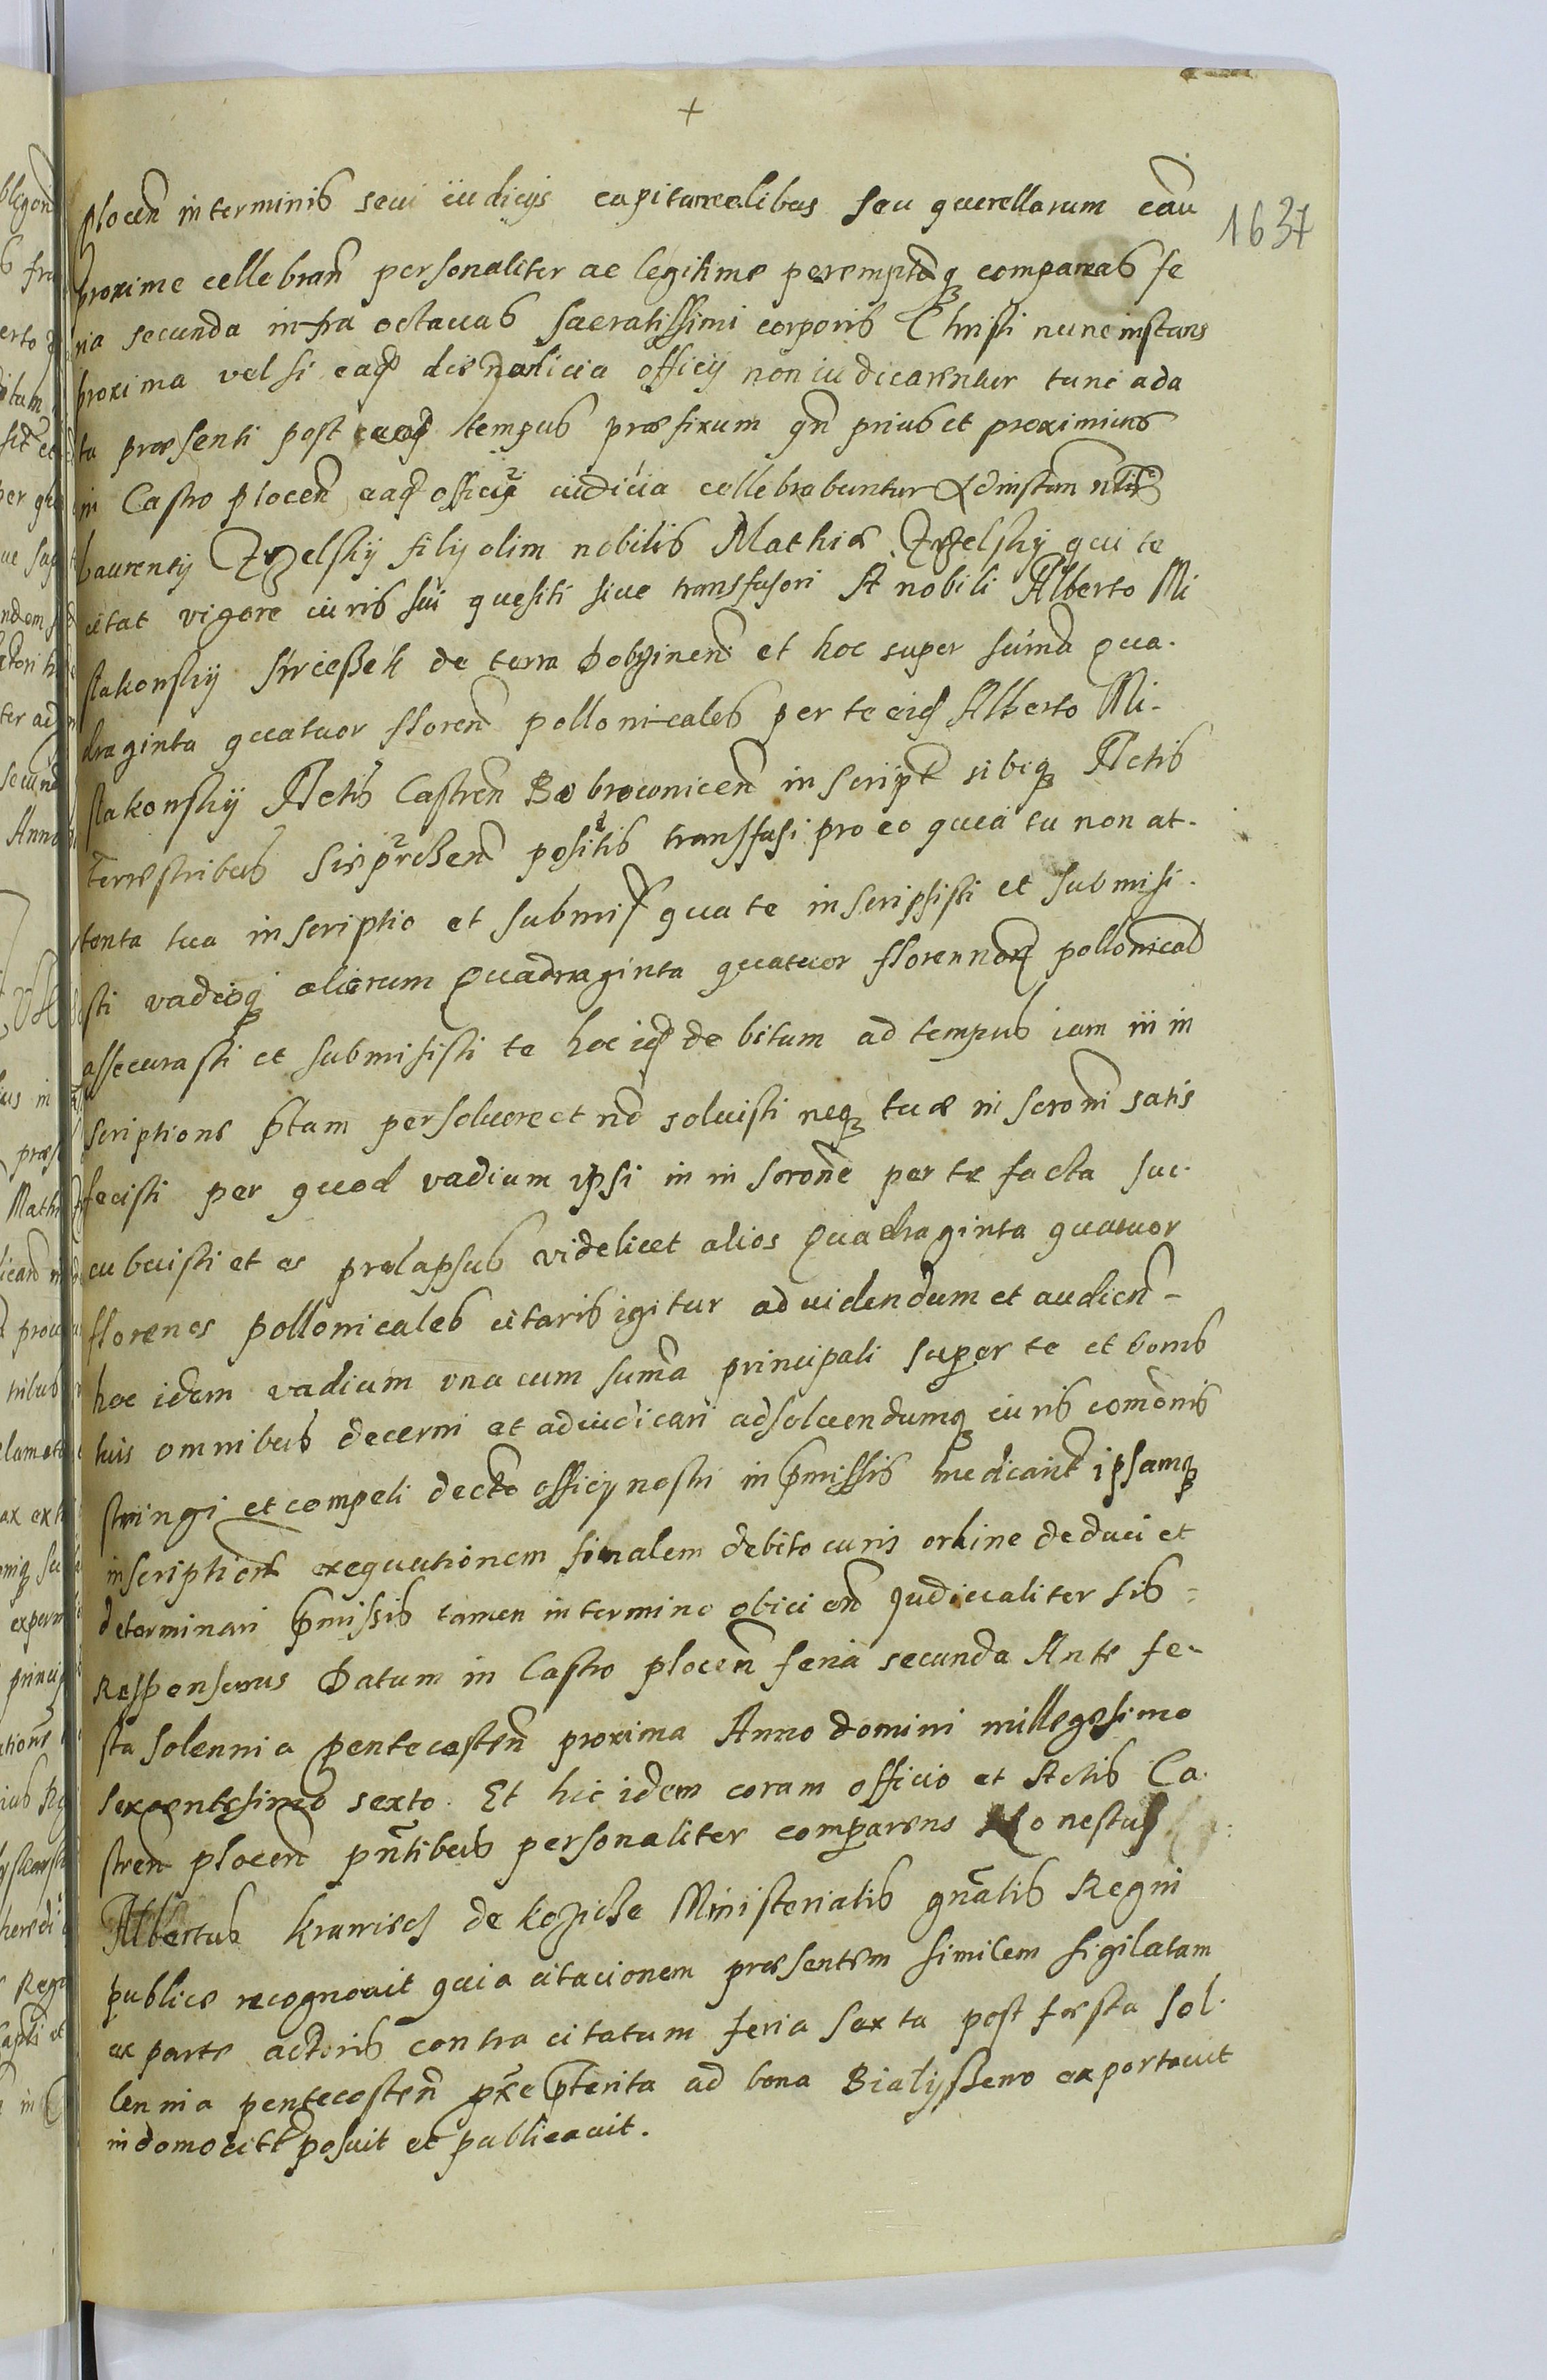 +
1637
Plocen in terminis seu iudicys capitanealibus seu querellarum cau
proxime cellebran personaliter ac legitime peremptoq compareas fe
ria secunda infra octauas sacratissimi corporis Christi nunc instans
proxima vel si eaqd die Iudicia officy non iudicarentur tunc a da
ta praesenti post eaqd tempus praefixum qn prius et proximius
in Castro plocen eaqd officy iudicia cellebrabuntur Ad instan nlis
Laurenty filij olim nobilis Mathiae qui te
citat vigore iuris sui quesiti siue transfusori A nobili Alberto Mi
stakonskij de terra Dobrzinen et hoc super suma qua-
draginta quatuor floren pollonicales per te eid Alberto Mi-
stakonskij Actis Castren Bobrownicen inscript sibiq Actis
Terrestribus Sierpcen positis transfusi pro eo quia tu non at-
tenta tua inscriptio et submis qua te inscripsisti et submisi-
sti vadioq aliorum Quadraginta quatuor florennor pollonical
assecurasti et submisisti te hoc id debitum ad tempus iam in in
scriptione ptam persoluere et no soluisti neq tuae inscroni satis
fecisti per quod vadium ipsi in inscrone per te facta suc-
cubuisti et es prolapsus videlicet alios Quadraginta quatuor
florenos pollonicales citaris igitur ad uidendum et audien-
hoc idem vadium vna cum suma principali super te et bonis
tuis omnibus decerni et adiudicari ad soluendumq iuris comonis
stringi et compeli decto officy nostri in pmissis medicant ipsamq
inscription exequutionem finalem debito iuris ordine deduci et
determinari pmissis tamen in termino obicien Iudicialiter sis
Responsurus Datum in Castro plocen feria secunda Ante fe-
sta solennia pentecosten proxima Anno domini millegesimo
sexcentesimo sexto. Et hic idem coram officio et Actis Ca-
stren plocen pntibus personaliter comparens Honestus
Albertus de Ministerialis gnalis Regni
publice recognouit quia citacionem praesentem similem sigilatam
ex parte actoris contra citatum feria sexta post festa sol-
lennia pentecosten pxe pterita ad bona Bialyszewo exportauit
in domo cit posuit et publicauit.